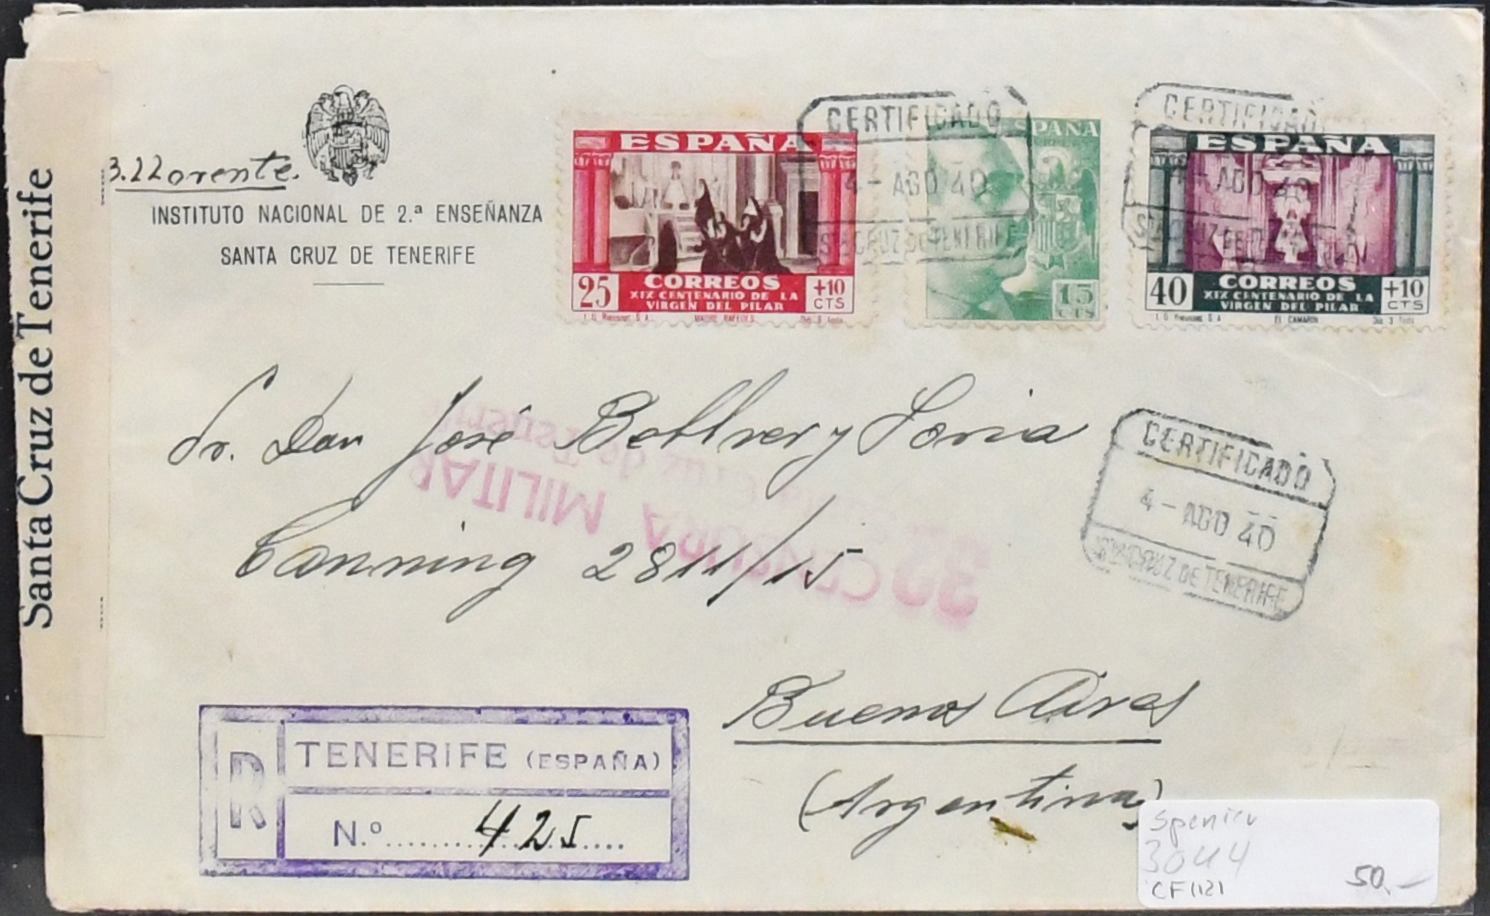 Santa Cruz de Tenerife
Llorente.
INSTITUTO NACIONAL DE 2.ª ENSEÑANZA
SANTA CRUZ DE TENERIFE
ESPAÑA
25 CORREOS +10 CTS
XIX CENTENARIO DE LA
VIRGEN DEL PILAR
CERTIFICADO
4 - AGO 40
STA CRUZ DE TENERIFE
ESPAÑA
15
CTS
CERTIFICADO
4 - AGO 40
STA CRUZ DE TENERIFE
ESPAÑA
40 CORREOS +10 CTS
XIX CENTENARIO DE LA
VIRGEN DEL PILAR
EL CAMARIN
Sr. Don José Bellver y Soria
Canning 2811/15
Buenos Aires
(Argentina)
CENSURA MILITAR
Santa Cruz de Tenerife
32
CERTIFICADO
4 - AGO 40
STA CRUZ DE TENERIFE
R
TENERIFE (ESPAÑA)
N.º 425
Spanien
3044
CF1121
50,-